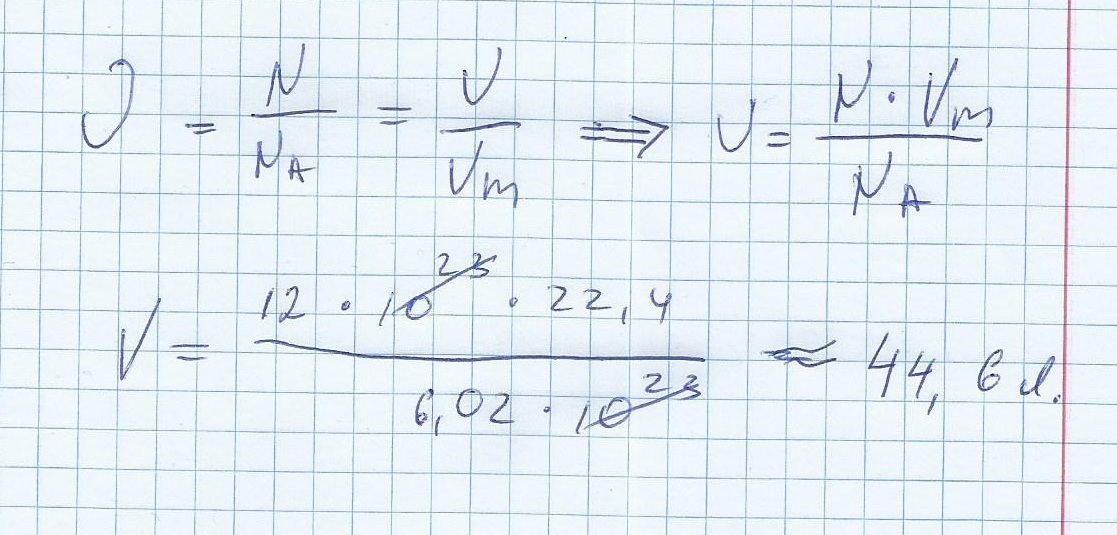 ν = N/N_A = V/V_m ⟹ V = N · V_m/N_A
V = 12 · 10^23 · 22,4/6,02 · 10^23 ≈ 44,6 л.